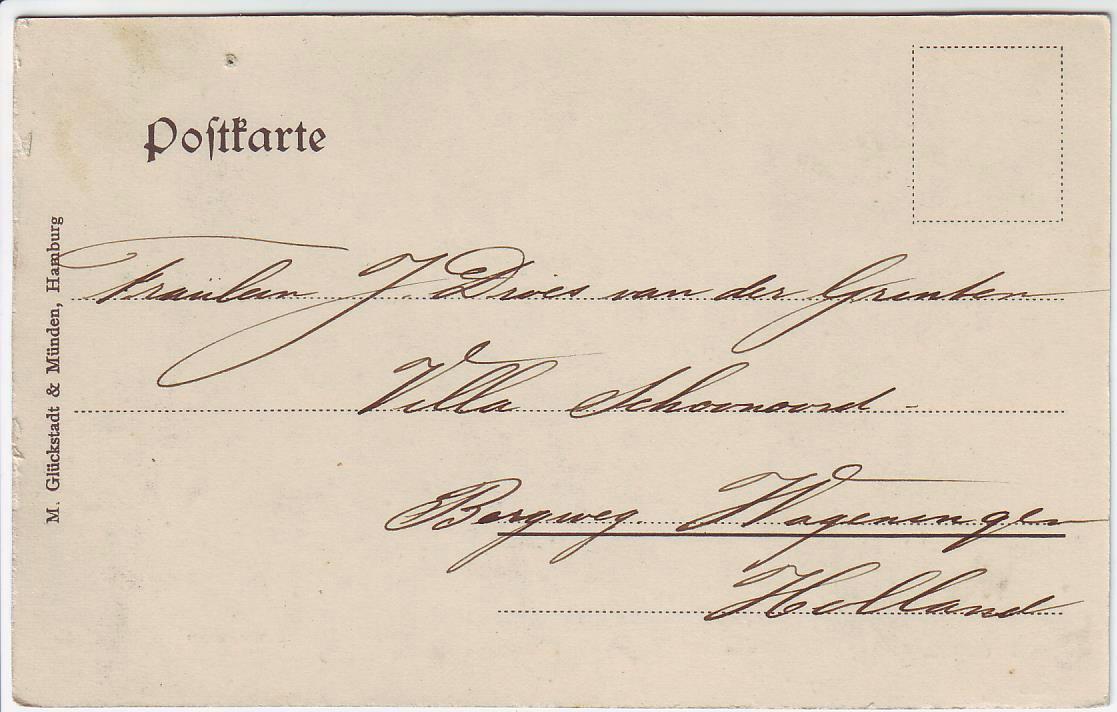 Postkarte
M. Glückstadt & Münden, Hamburg
Fräulein J. Dries van der Grinten
Villa Schoonoord -
Bergweg. Wageningen
Holland